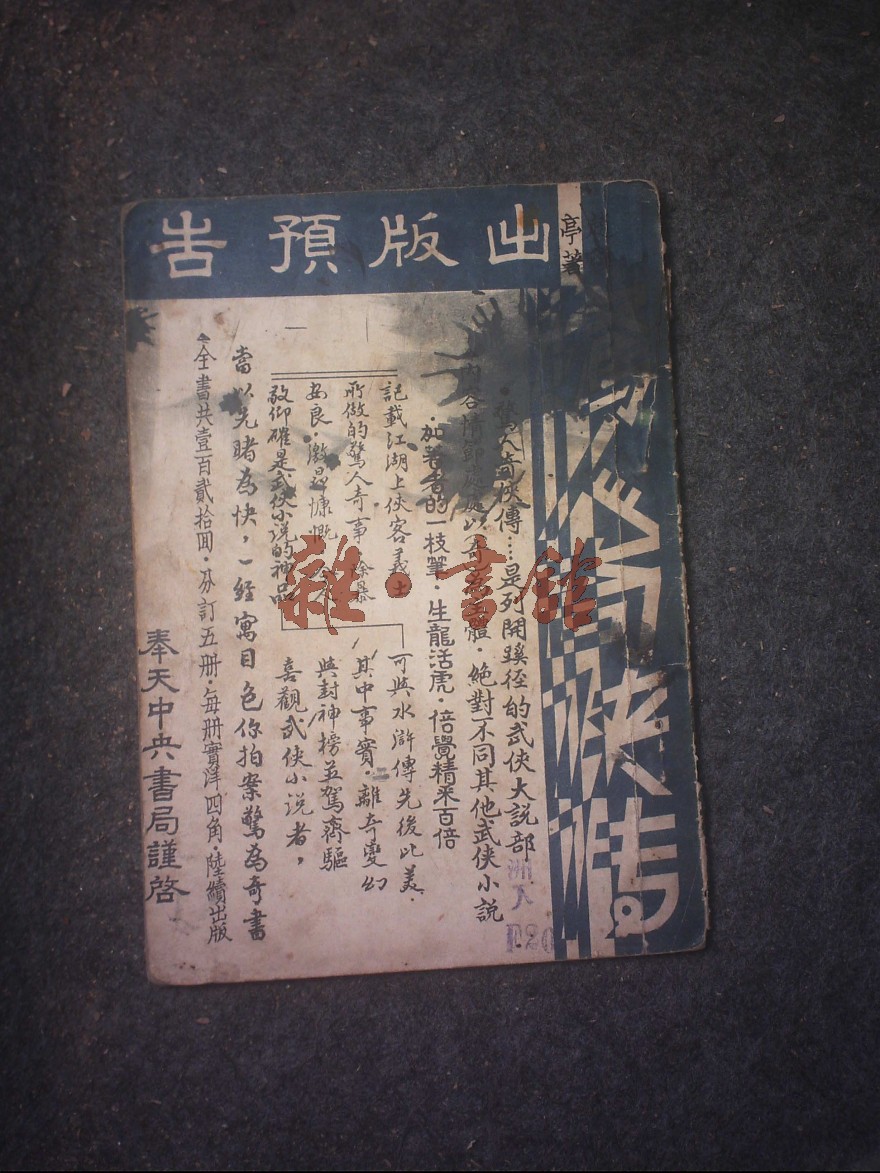 出版預告
亭著
奇俠傳
驚人奇俠傳…是別開蹊径的武俠大説部
處處以奇為體·絶對不同其他武俠小説
·加著者的一枝筆·生龍活虎·倍覺精采百倍
記載江湖上俠客義士
所做的驚人奇事·除暴
安良·激昂慷慨·令人
敬仰確是武俠小説的神品
可與水滸傳先後比美·
其中事實·離奇變幻
與封神榜並駕齊驅
喜觀武俠小説者，
當以先睹為快，一經寓目色你拍案驚為奇書
全書共壹百貳拾囬·分訂五册·每册實洋四角·陸續出版
奉天中央書局謹啓
雜·書館